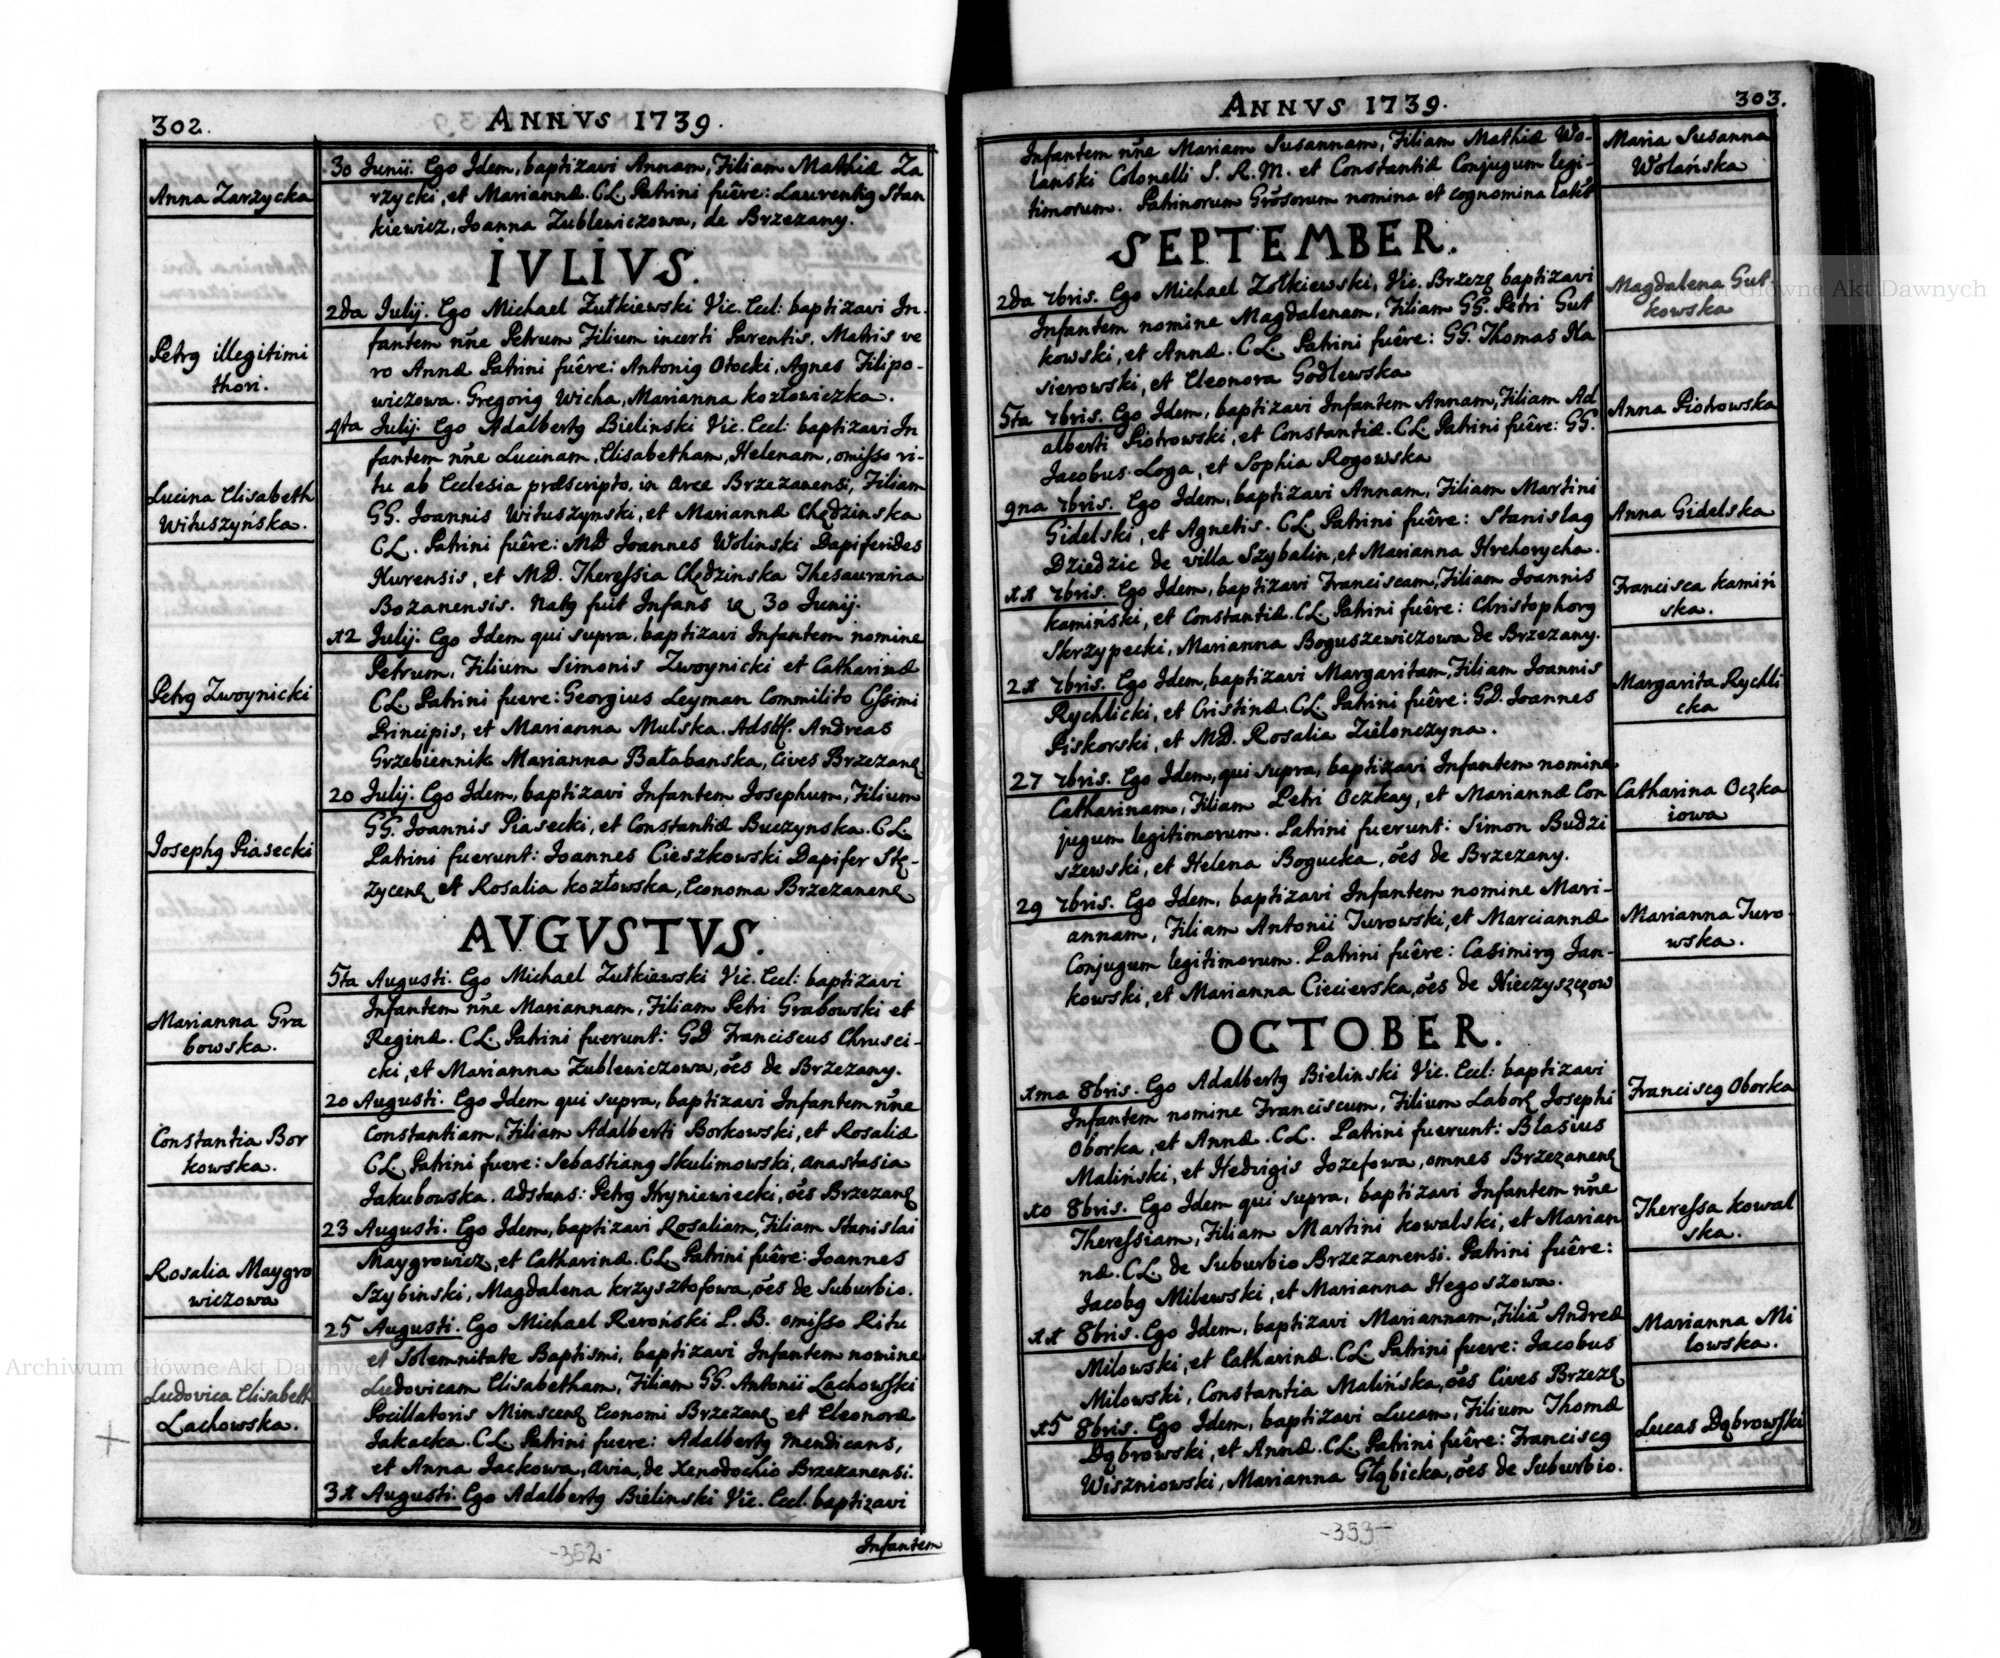 302.
ANNVS 1739.
Anna Zarzycka
30 Junii. Ego Idem, baptizavi Annam, Filiam Mathiæ Za
rzycki, et Mariannæ. CL. Patrini fuêre: Laurentig Stan
kiewicz, Joanna Zublewiczowa, de Brzezany.
IVLIVS.
Petrg illegitimi
thori.
2da Julij. Ego Michael Zutkiewski Vic. Eccl: baptizavi In-
fantem nñe Petrum Filium incerti Parentis, Matris ve
ro Annæ Patrini fuêre: Antonig Otocki, Agnes Filipo-
wiczowa. Gregorig Wicha, Marianna Kozłowiczka.
Lucina Elisabeth
Wituszyńska.
4ta Julij. Ego Adalbertg Bielinski Vic. Eccl: baptizavi In
fantem nñe Lucinam, Elisabetham, Helenam, omisso ri-
tu ab Ecclesia præscripto, in Arce Brzezanensi, Filiam
GG. Joannis Wituszynski, et Mariannæ Chędzinska
CL. Patrini fuêre: MD Joannes Wolinski Dapiferides
Nurensis, et MD. Theressia Chędzinska Thesauraria
Bozanensis. Natg fuit Infans 30 Junij.
Petrg Zwoynicki
12 Julij. Ego Idem qui supra, baptizavi Infantem nomine
Petrum, Filium Simonis Zwoynicki et Catharinæ
CL. Patrini fuere: Georgius Leyman Commilito Cssimi
Principis, et Marianna Mulska. Adstt. Andreas
Grzebiennik Marianna Bałabanska, Cives Brzezanę
Josephg Piasecki
20 Julij. Ego Idem, baptizavi Infantem Josephum, Filium
GG. Joannis Piasecki, et Constantiæ Buczynska. CL.
Patrini fuerunt: Joannes Cieszkowski Dapifer Stę-
zycenę et Rosalia Kozłowska, Economa Brzezanenę
AVGVSTVS.
Marianna Gra
bowska.
5ta Augusti. Ego Michael Zutkiewski Vic. Eccl: baptizavi
Infantem nñe Mariannam, Filiam Petri Grabowski et
Reginæ. CL. Patrini fuerunt: GD Franciscus Chrusci-
cki, et Marianna Zublewiczowa, oẽs de Brzezany.
Constantia Bor
kowska.
20 Augusti. Ego Idem qui supra, baptizavi Infantem nñe
Constantiam, Filiam Adalberti Borkowski, et Rosaliæ
CL. Patrini fuere: Sebastiang Skulimowski, Anastasia
Jakubowska. Adstans: Petrg Hryniewiecki, oẽs Brzezanę
Rosalia Maygro
wiczowa
23 Augusti. Ego Idem, baptizavi Rosaliam, Filiam Stanislai
Maygrowicz, et Catharinæ. CL. Patrini fuêre: Joannes
Szybinski, Magdalena Krzysztofowa, oẽs de Suburbio.
Ludovica Elisabeth
Lachowska.
25 Augusti. Ego Michael Reroński P. B. omisso Ritu
et Solemnitate Baptismi, baptizavi Infantem nomine
Ludovicam Elisabetham, Filiam GG. Antonii Lachowski
Pocillatoris Minscenę Economi Brzezanę et Eleonoræ
Jakacka. CL. Patrini fuere: Adalbertg Mendicans,
et Anna Jackowa, Avia, de Xenodochio Brzezanensi.
31 Augusti. Ego Adalbertg Bielinski Vic. Eccl. baptizavi
Infantem
-352-
303.
ANNVS 1739.
Infantem nñe Mariam Susannam, Filiam Mathiæ Wo-
lanski Colonelli S. R. M. et Constantiæ Conjugum legi-
timorum. Patrinorum Grõsorum nomina et cognomina latẽt
Maria Susanna
Wolańska
SEPTEMBER.
2da 7bris. Ego Michael Zołkiewski, Vic. Brzezę baptizavi
Infantem nomine Magdalenam, Filiam GG. Petri Gut
kowski, et Annæ. CL. Patrini fuêre: GG. Thomas Na
sierowski, et Eleonora Godlewska
Magdalena Gut
kowska
5ta 7bris. Ego Idem, baptizavi Infantem Annam, Filiam Ad
alberti Piotrowski, et Constantiæ. CL. Patrini fuêre: GG.
Jacobus Loga, et Sophia Rogowska
Anna Piotrowska
9na 7bris. Ego Idem, baptizavi Annam, Filiam Martini
Gidelski, et Agnetis. CL. Patrini fuêre: Stanislag
Dziedzic de villa Szybalin, et Marianna Hrehorycha.
Anna Gidelska
11 7bris. Ego Idem, baptizavi Franciscam, Filiam Joannis
Kamiński, et Constantiæ. CL. Patrini fuêre: Christophorg
Skrzypecki, Marianna Boguszewiczowa de Brzezany.
Francisca Kamiń
ska.
21 7bris. Ego Idem, baptizavi Margaritam, Filiam Joannis
Rychlicki, et Cristinæ. CL. Patrini fuêre: GD. Joannes
Piskorski, et MD. Rosalia Zielonczyna.
Margarita Rychli
cka
27 7bris. Ego Idem, qui supra, baptizavi Infantem nomine
Catharinam, Filiam Petri Oczkay, et Mariannæ Con
jugum legitimorum. Patrini fuerunt: Simon Budzi
szewski, et Helena Bogucka, oẽs de Brzezany.
Catharina Oczka
iowa
29 7bris. Ego Idem, baptizavi Infantem nomine Mari-
annam, Filiam Antonii Turowski, et Marciannæ
Conjugum legitimorum. Patrini fuêre: Casimirg Jan-
kowski, et Marianna Ciecierska, oẽs de Nieczyszczow
Marianna Turo-
wska.
OCTOBER.
1ma 8bris. Ego Adalbertg Bielinski Vic. Eccl: baptizavi
Infantem nomine Franciscum, Filium Laborę Josephi
Oborka, et Annæ. CL. Patrini fuerunt: Blasius
Maliński, et Hedvigis Jozefowa, omnes Brzezanenę
Franciscg Oborka
10 8bris. Ego Idem qui supra, baptizavi Infantem nñe
Theressiam, Filiam Martini Kowalski, et Marian
næ. CL. de Suburbio Brzezanensi. Patrini fuêre:
Jacobg Milewski, et Marianna Hegoszowa.
Theressa Kowal
ska.
11 8bris. Ego Idem, baptizavi Mariannam, Filiã Andreæ
Milowski, et Catharinæ. CL. Patrini fuere: Jacobus
Milowski, Constantia Malińska, oẽs Cives Brzezę
Marianna Mi
lowska.
15 8bris. Ego Idem, baptizavi Lucam, Filium Thomæ
Dąbrowski, et Annæ. CL. Patrini fuêre: Franciscg
Wiszniowski, Marianna Głąbicka, oẽs de Suburbio.
Lucas Dąbrowski
-353-
Archiwum Główne Akt Dawnych
Główne Akt Dawnych